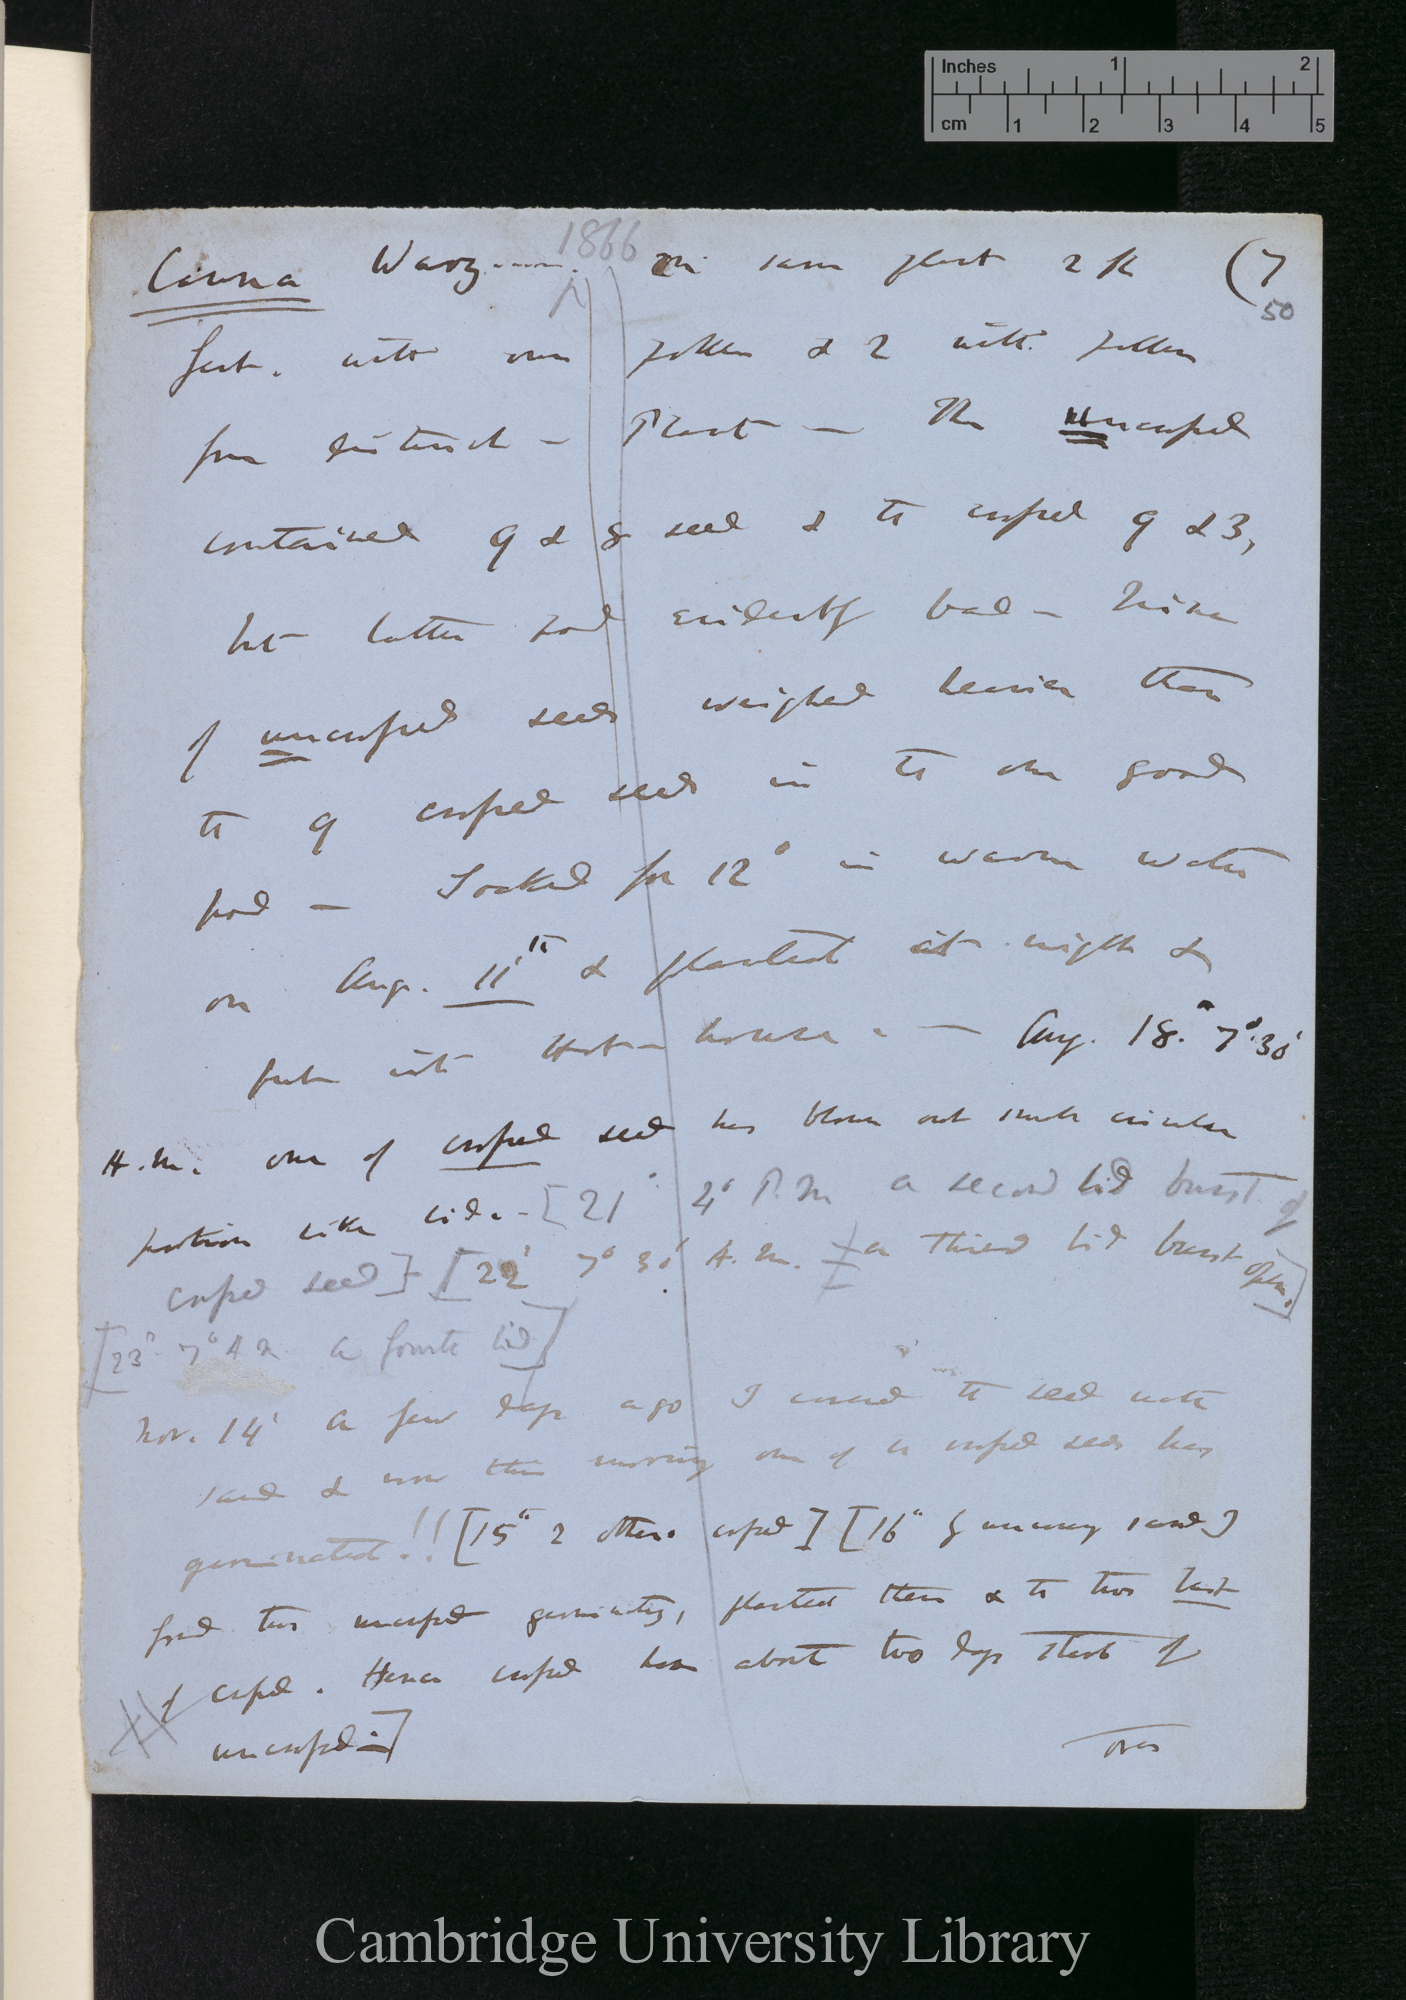 Inches 1 2
cm 1 2 3 4 5
1866
Canna Warz on same plant 2 fl (7
50
fert. with own pollen & 2 with pollen
from distinct — Plant — The uncrossed
contained 9 & 8 seed & the crossed 9 & 3,
but latter pod evidently bad — Nine
of uncrossed seeds weighed heavier than
the 9 crossed seeds in the one good
pod — Soaked for 12° in warm water
on Aug. 11th & planted at night &
put into Hot-house. — Aug. 18. 7°.30'
A.M. one of crossed seed has blown out small circular
portion like lid. — [21 4° P.M a second lid burst of
crossed seed] — [22 7° 30' A.M. a third lid burst open.]
[23 7° A M a fourth lid]
Nov. 14 a few days ago I covered the seed with
sand & now this morning one of the crossed seeds has
germinated!! [15" 2 others crossed] [16" by removing sand I
found two uncrossed germinating, planted them & the two last
of crossed. Hence crossed have about two days start of
uncrossed —]
over
Cambridge University Library